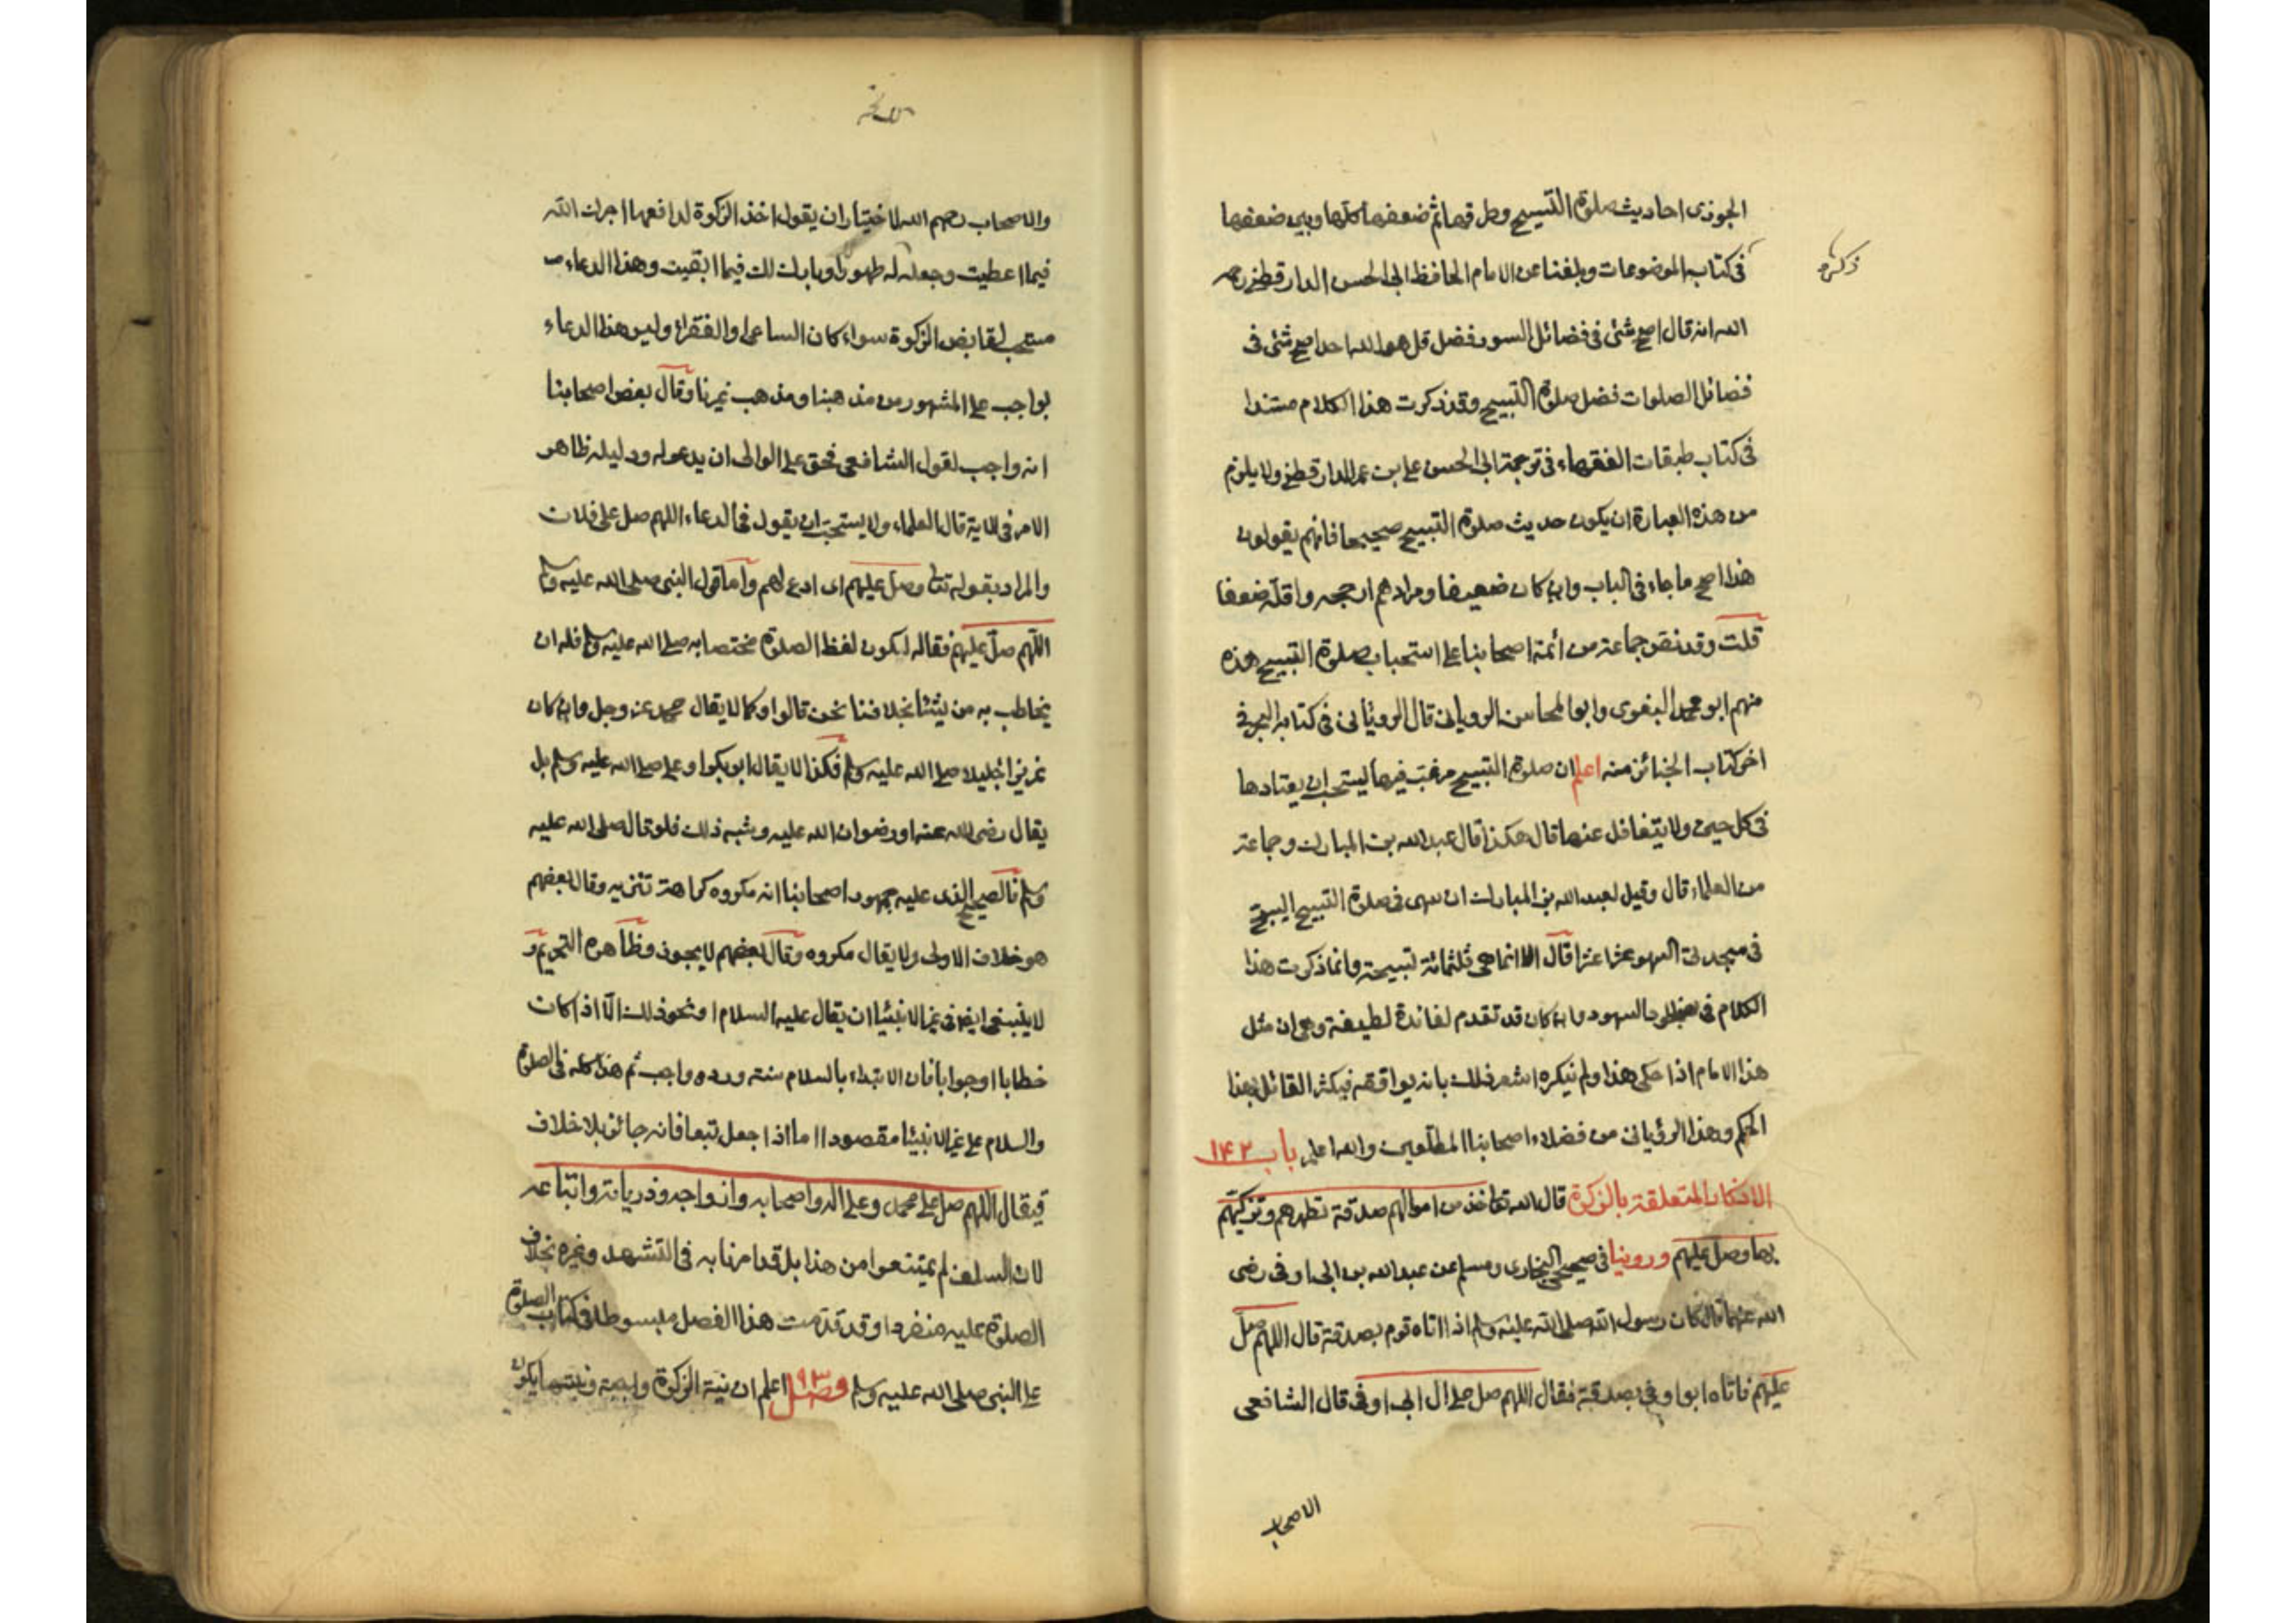 الجوزى احاديث صلوة التسبيح وطرقها ثم ضعفها كلها وبين ضعفها
ذكره
فى كتاب الموضوعات وبلغنا عن الامام الحافظ ابى الحسن الدارقطنى رحمه
الله انه قال اصح شئى فى فضائل السور فضل قل هو الله احد اصح شئى فى
فضائل الصلوات فضل صلوة التسبيح وقد ذكرت هذا الكلام مسندا
فى كتاب طبقات الفقهاء فى ترجمة ابى الحسن على بن عمر الدارقطنى ولا يلزم
من هذه العبارة ان يكون حديث صلوة التسبيح صحيحا فانهم يقولون
هذا اصح ما جاء فى الباب وان كان ضعيفا ومرادهم ارجحه واقله ضعفا
قلت وقد نص جماعة من ائمة اصحابنا على استحباب صلوة التسبيح هذه
منهم ابو محمد البغوى وابو المحاسن الرويانى قال الرويانى فى كتابه البحر فى
اخر كتاب الجنائز منه اعلم ان صلوة التسبيح مرغب فيها يستحب ان يعتادها
فى كل حين ولا يتغافل عنها قال هكذا قال عبد الله بن المبارك وجماعة
من العلماء قال وقيل لعبد الله بن المبارك ان سهى فى صلوة التسبيح ايسبح
فى سجدتى السهو عشرا عشرا قال لا انما هى ثلثمائة تسبيحة وانما ذكرت هذا
الكلام فى سجود السهو وان كان قد تقدم لفائدة لطيفة وهى ان مثل
هذا الامام اذا حكى هذا ولم ينكره اشعر ذلك بانه يوافقه فيكثر القائل بهذا
الحكم وهذا الرؤيانى من فضلاء اصحابنا المطلعين والله اعلم باب ١٤٢
الاذكار المتعلقة بالزكوة قال الله تعا خذ من اموالهم صدقة تطهرهم وتزكيهم
بها وصل عليهم وروينا فى صحيحى البخارى ومسلم عن عبد الله بن ابى اوفى رضى
الله عنهما قال كان رسول الله صلى الله عليه وسلم اذا اتاه قوم بصدقة قال اللهم صل
عليهم فاتاه ابو اوفى بصدقة فقال اللهم صل على ال ابى اوفى قال الشافعى
الاصحاب
والاصحاب رحمهم الله الاختيار ان يقول اخذ الزكوة لدافعها اجرك الله
فيما اعطيت وجعله لك طهورا وبارك لك فيما ابقيت وهذا الدعاء
مستحب لقابض الزكوة سواء كان الساعى او الفقراء وليس هذا الدعاء
بواجب على المشهور من مذهبنا ومذهب غيرنا وقال بعض اصحابنا
انه واجب لقول الشافعى فحق على الوالى ان يدعو له ودليله ظاهر
الامر فى الاية قال العلماء ولا يستحب ان يقول فى الدعاء اللهم صل على فلان
والمراد بقوله تعا وصل عليهم اى ادع لهم واما قول النبى صلى الله عليه وسلم
اللهم صل عليهم فقاله لكون لفظ الصلوة مختصا به صلى الله عليه وسلم فله ان
يخاطب به من يشاء بخلافنا نحن قالوا وكما لا يقال محمد عز وجل وان كان
عزيزا جليلا صلى الله عليه وسلم فكذا لا يقال ابو بكر او على صلى الله عليه وسلم بل
يقال رضى الله عنه او رضوان الله عليه وشبه ذلك فلو قال صلى الله عليه
وسلم فالصحيح الذى عليه جمهور اصحابنا انه مكروه كراهة تنزيه وقال بعضهم
هو خلاف الاولى ولا يقال مكروه وقال بعضهم لا يجوز وظاهره التحريم و
لا ينبغى ايضا فى غير الانبيا ان يقال عليه السلام او نحو ذلك الا اذا كان
خطابا او جوابا فان الابتداء بالسلام سنة ورده واجب ثم هذا كله فى الصلوة
والسلام على غير الانبيا مقصودا اما اذا جعل تبعا فانه جائز بلا خلاف
فيقال اللهم صل على محمد وعلى اله واصحابه وازواجه وذرياته واتباعه
لان السلف لم يمتنعوا من هذا بل قد امرنا به فى التشهد وغيره بخلاف
الصلوة عليه منفردا وقد قدمت هذا الفصل مبسوطا فى كتاب الصلوة
على النبى صلى الله عليه وسلم فصل ٩٣ اعلم ان نية الزكوة واجبة ونيتها يكون